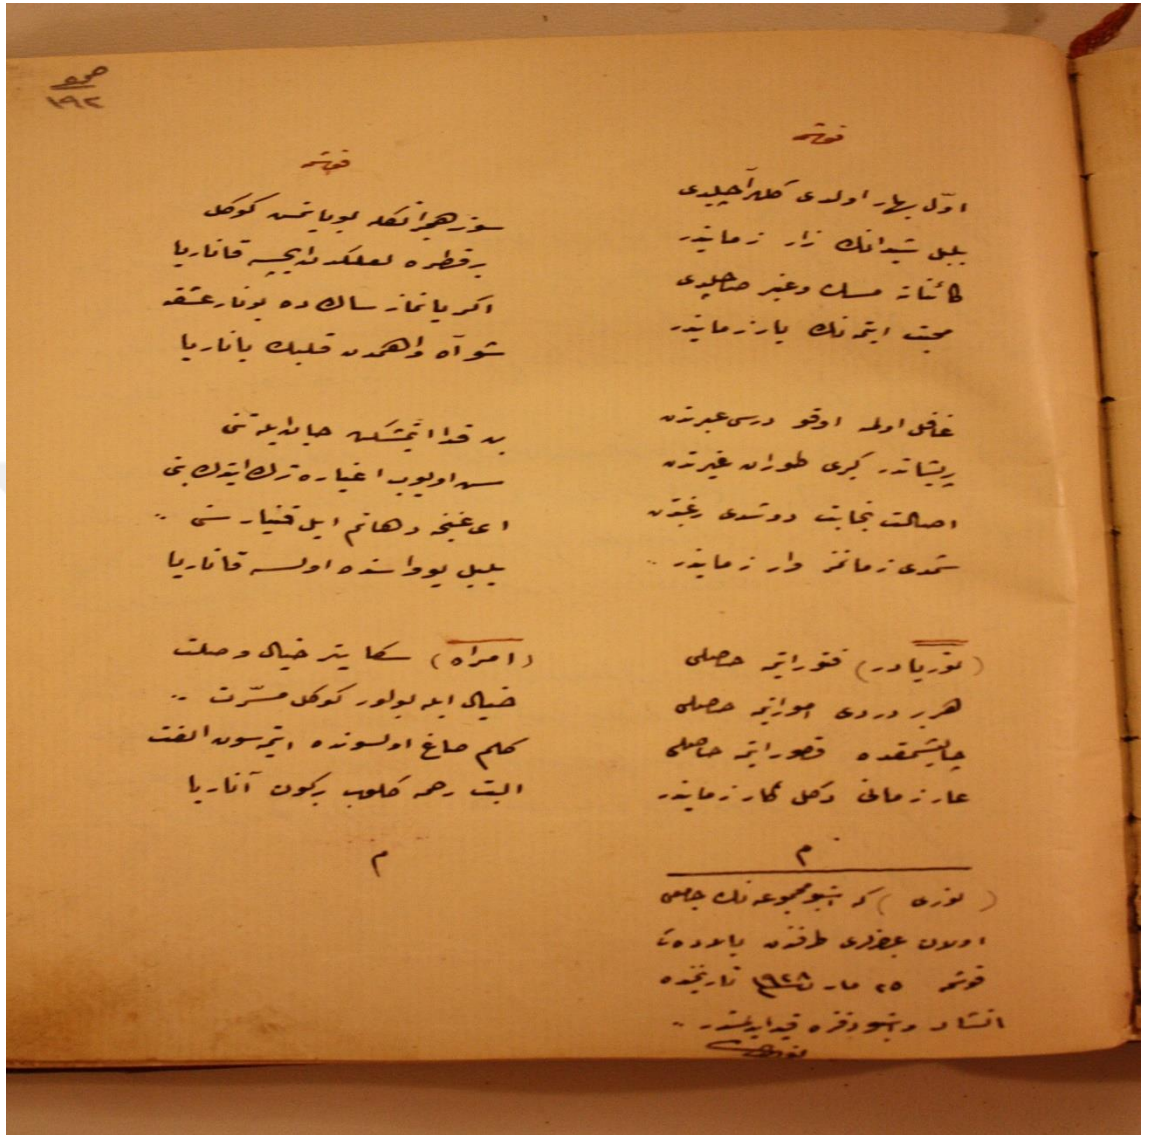 صحيفه
١٩٢
قوشمه
اوّل بهار اولدی كللر آچيلدی
بلبل شيدانك زار زمانيدر
كائناته مسك و عنبر صاچيلدی
محبت ايتمه نك يار زمانيدر
غافل اولمه اوقو درسی عبرتدن
پريشاندر كری طوران غيرتدن
اصالت نجابت دوشدی رغبتدن
شمدی زمانمز وار زمانيدر ..
(نوری يا در) فتور ايتمه حاصلی
هر بر دردی ايتمه حاصلی
چاليشمقده قصور ايتمه حاصلی
عار زمانی دكل كار زمانيدر
م
(نوری) كه اشبو مجموعه نك جامعی
اولان طرفندن بالاده كی
قوشمه ٢٥ مارت ١٩٢٨ تاريخنده
انشاد و اشبو دفتره قيد ايدلمشدر ..
نوری
قوشمه
سوز هجرانكله بويانمش كوكل
بر قطره لعلكدن ايچسه قانار يا
اكر يانماز سالك ده بو نار عشقه
شو آه واهمدن قلبك يانار يا
بن فدا ايتمشكن جان ايله تنی
سن اويوب اغياره ترك ايتدك بنی
ای غنچه دهانم ايل قينار سنی ..
بلبل يوواسنده اولسه قانار يا
(امراه) سكا يتر خيال وصلت
خيال ايله بولور كوكل مسرّت ..
كلم صاغ اولسونده ايتمه سون الفت
البت رحمه كلوب بركون آنار يا
م